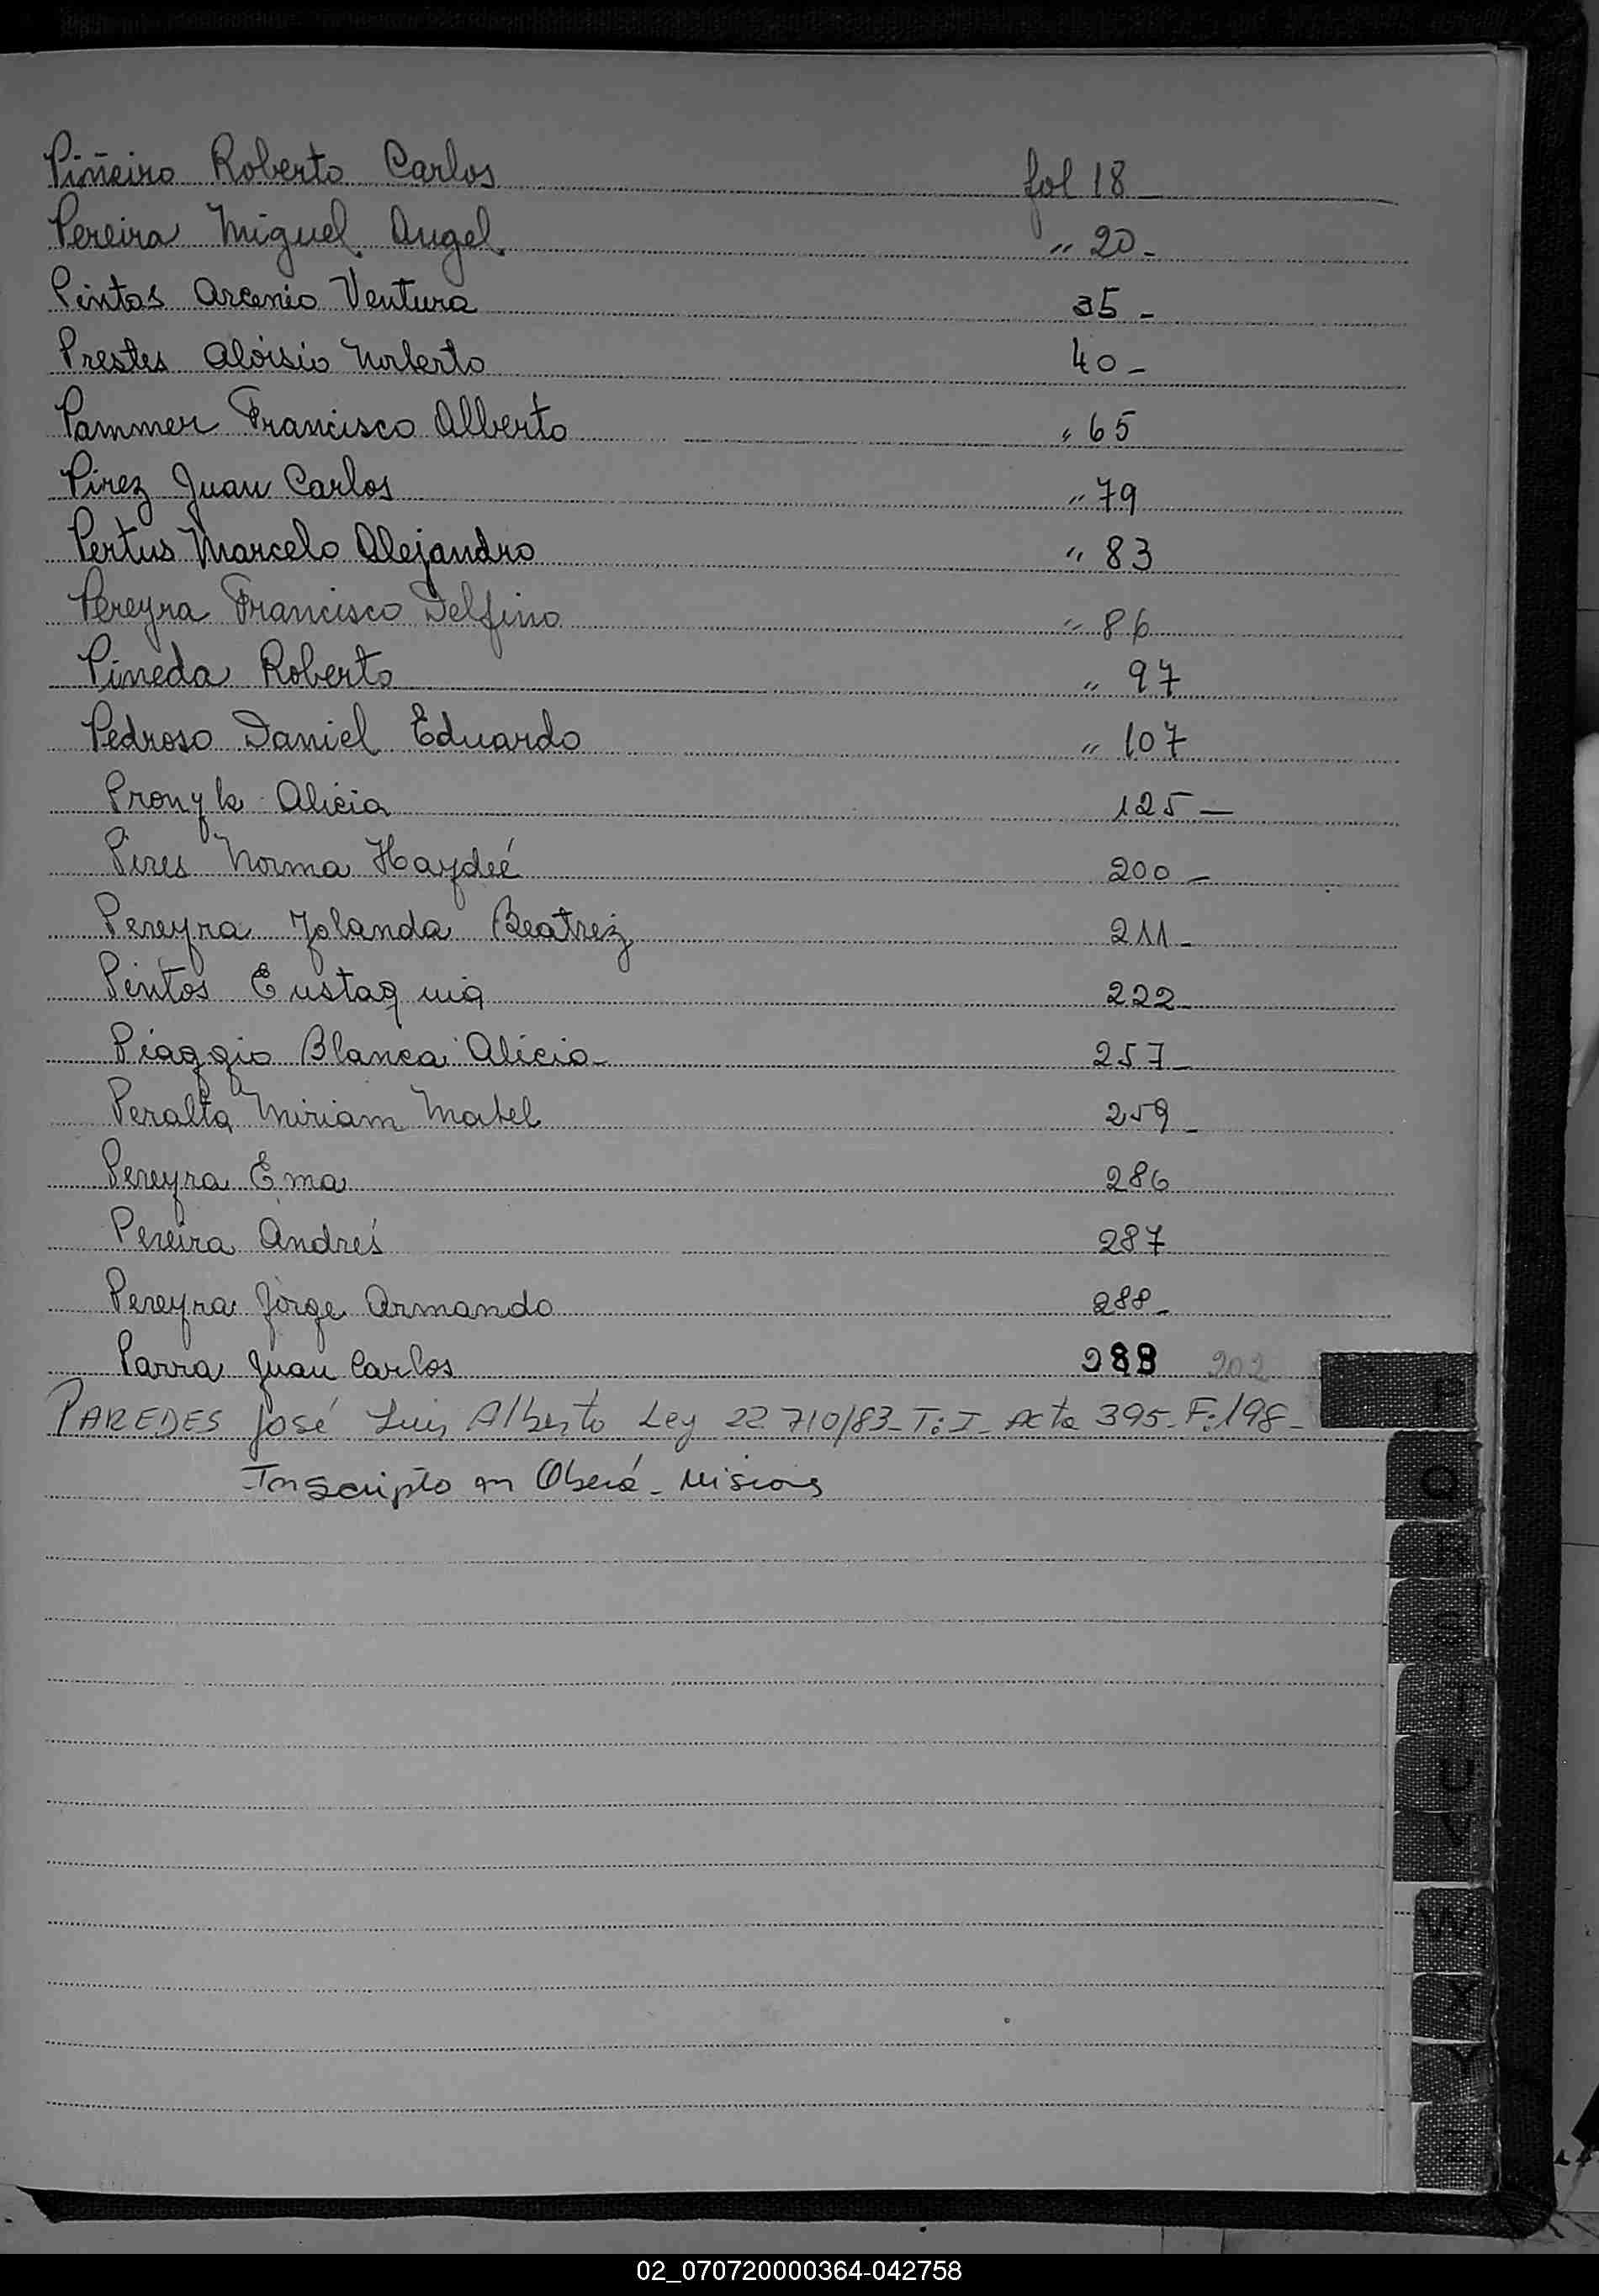 Piñeiro Roberto Carlos fol 18
Pereira Miguel Angel " 20 -
Pintos Arcenio Ventura 35 -
Prestes Aloisio Norberto 40 -
Pammer Francisco Alberto " 65
Pirez Juan Carlos " 79
Pertus Marcelo Alejandro " 83
Pereyra Francisco Delfino " 86
Pineda Roberto " 97
Pedroso Daniel Eduardo " 107
Pronyk Alicia 125 —
Pires Norma Haydeé 200 -
Pereyra Yolanda Beatriz 211 -
Pintos Eustaquia 222 -
Piaggio Blanca Alicia - 257 -
Peralta Miriam Mabel 259 -
Pereyra Ema 286
Pereira Andrés 287
Pereyra Jorge Armando 288 -
Parra Juan Carlos 288 202
PAREDES José Luis Alberto Ley 22 710/83 - T: I - Acta 395 - F: 198 -
Inscripto en Oberá - Misiones
P
Q
R
S
T
U
V
W
X
Y
Z
02_070720000364-042758